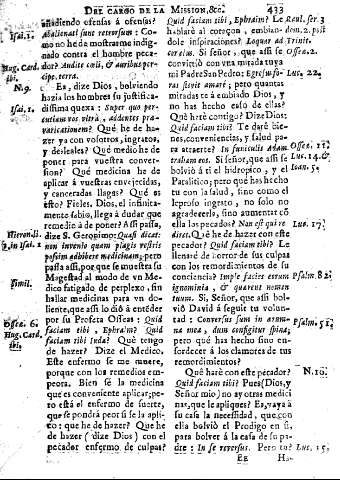 DEL CARGO DE LA MISSION, &c. 433
añadiendo ofensas á ofensas?
Isai. 1. Abalienati sunt retrorsum: Co-
mo no he de mostrarme indig-
nado contra el hombre peca-
Hug. Card. ibi. dor? Audite cœli, & auribus per-
cipe terra.
N. 9. Ea, dize Dios, bolviendo
hazia los hombres su justifica-
Isai. 1. dissima quexa: Super quo per-
cutiam vos vltrà, addentes præ-
varicationem? Què he de ha-
zer ya con vosotros, ingratos,
y desleales? Què medio he de
poner para vuestra conver-
sion? Què medicina he de
aplicar á vuestras envejecidas,
y canceradas llagas? Què es
esto? Fieles. Dios, el infinita-
mente sabio, llega à dudar que
remedio á de poner? Assi passa,
Hieron. li. dize S. Geronimo: Quasi dicat:
2. in Isai. 1 non invenio quam plagis vestris
possim adhibere medicinam; pero
passa assi, porque se muestra su
Magestad al modo de vn Me-
Simil. dico fatigado de perplexo, sin
hallar medicinas para vn do-
liente, que assi lo diò à entèder
Oseæ. 6. por su Profeta Oseas: Quid
faciam tibi, Ephraim? Quid
Hug. Card. ibi, faciam tibi Iuda? Què tengo
de hazer? Dize el Medico.
Este enfermo se me muere,
porque con los remedios em-
peora. Bien sè la medicina
que es conveniente aplicar; pe-
ro está el enfermo de suerte,
que se pondrà peor si se la apli-
co: que he de hazer? Què he
de hazer (dize Dios) con el
pecador enfermo de culpas?
Quid faciam tibi, Ephraim? Le Reul. ser. 3
hablarè al coraçon, embian- dom. 2. post
dole inspiraciones? Loquar ad Trinit.
cor eius. Si Señor, que assi se Oseæ 2.
convirtió con vna mirada tuya
mi Padre San Pedro: Egressus fo- Luc. 22.
ras flevit amarè; pero quantas
miradas te à embiado Dios, y
no has hecho caso de ellas?
Què harè contigo? Dize Dios:
Quid faciam tibi? Te darè bie-
nes, conveniencias, y salud pa-
ra atraerte? In funiculis Adam Oseæ. 11.
traham eos. Si Señor, que assi se Luc. 14. &
bolviò á ti el hidropico, y el Ioan. 5.
Paralitico; pero què has hecho
tu con la salud, sino como el
leproso ingrato, no solo no
agradecerla, sino aumentar cõ
ella los pecados? Non est qui re Luc. 17.
diret. Què he de hazer con este
pecador? Quid faciam tibi? Le
llenarè de horror de sus culpas
con los remordimientos de su
conciencia? Imple facies eorum Psalm. 82.
ignominia, & quærent nomen
tuum. Si, Señor, que assi bol-
viò David à seguir tu volun-
tad: Conversus sum in ærum- Psalm. 31.
na mea, dum configitur spina;
pero què has hecho sino en-
sordecer à los clamores de tus
remordimientos?
Què harè con este pecador? N. 10.
Quid faciam tibi? Pues (Dios, y
Señor mio) no ay otras medici-
nas, que le apliques? Ea, vaya à
su casa la necessidad, que con
ella bolviò el Prodigo en si,
para bolver à la casa de su pa-
dre: In se reversus. Pero tu? Luc. 15.
Ee Ha-